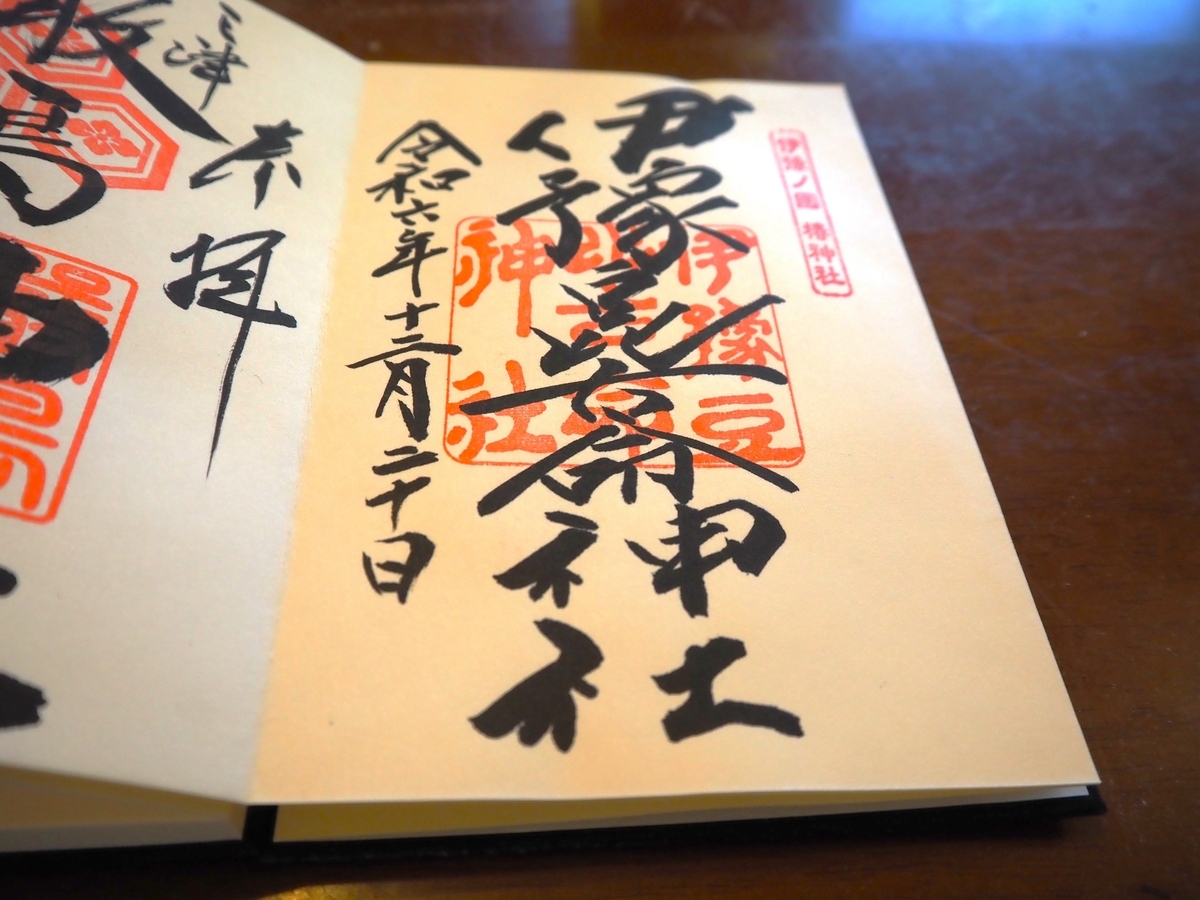 伊豫ノ國 椿神社
伊豫豆比古命神社
伊豫豆
比古命
神社
令和六年十二月二十日
三津
奉拝